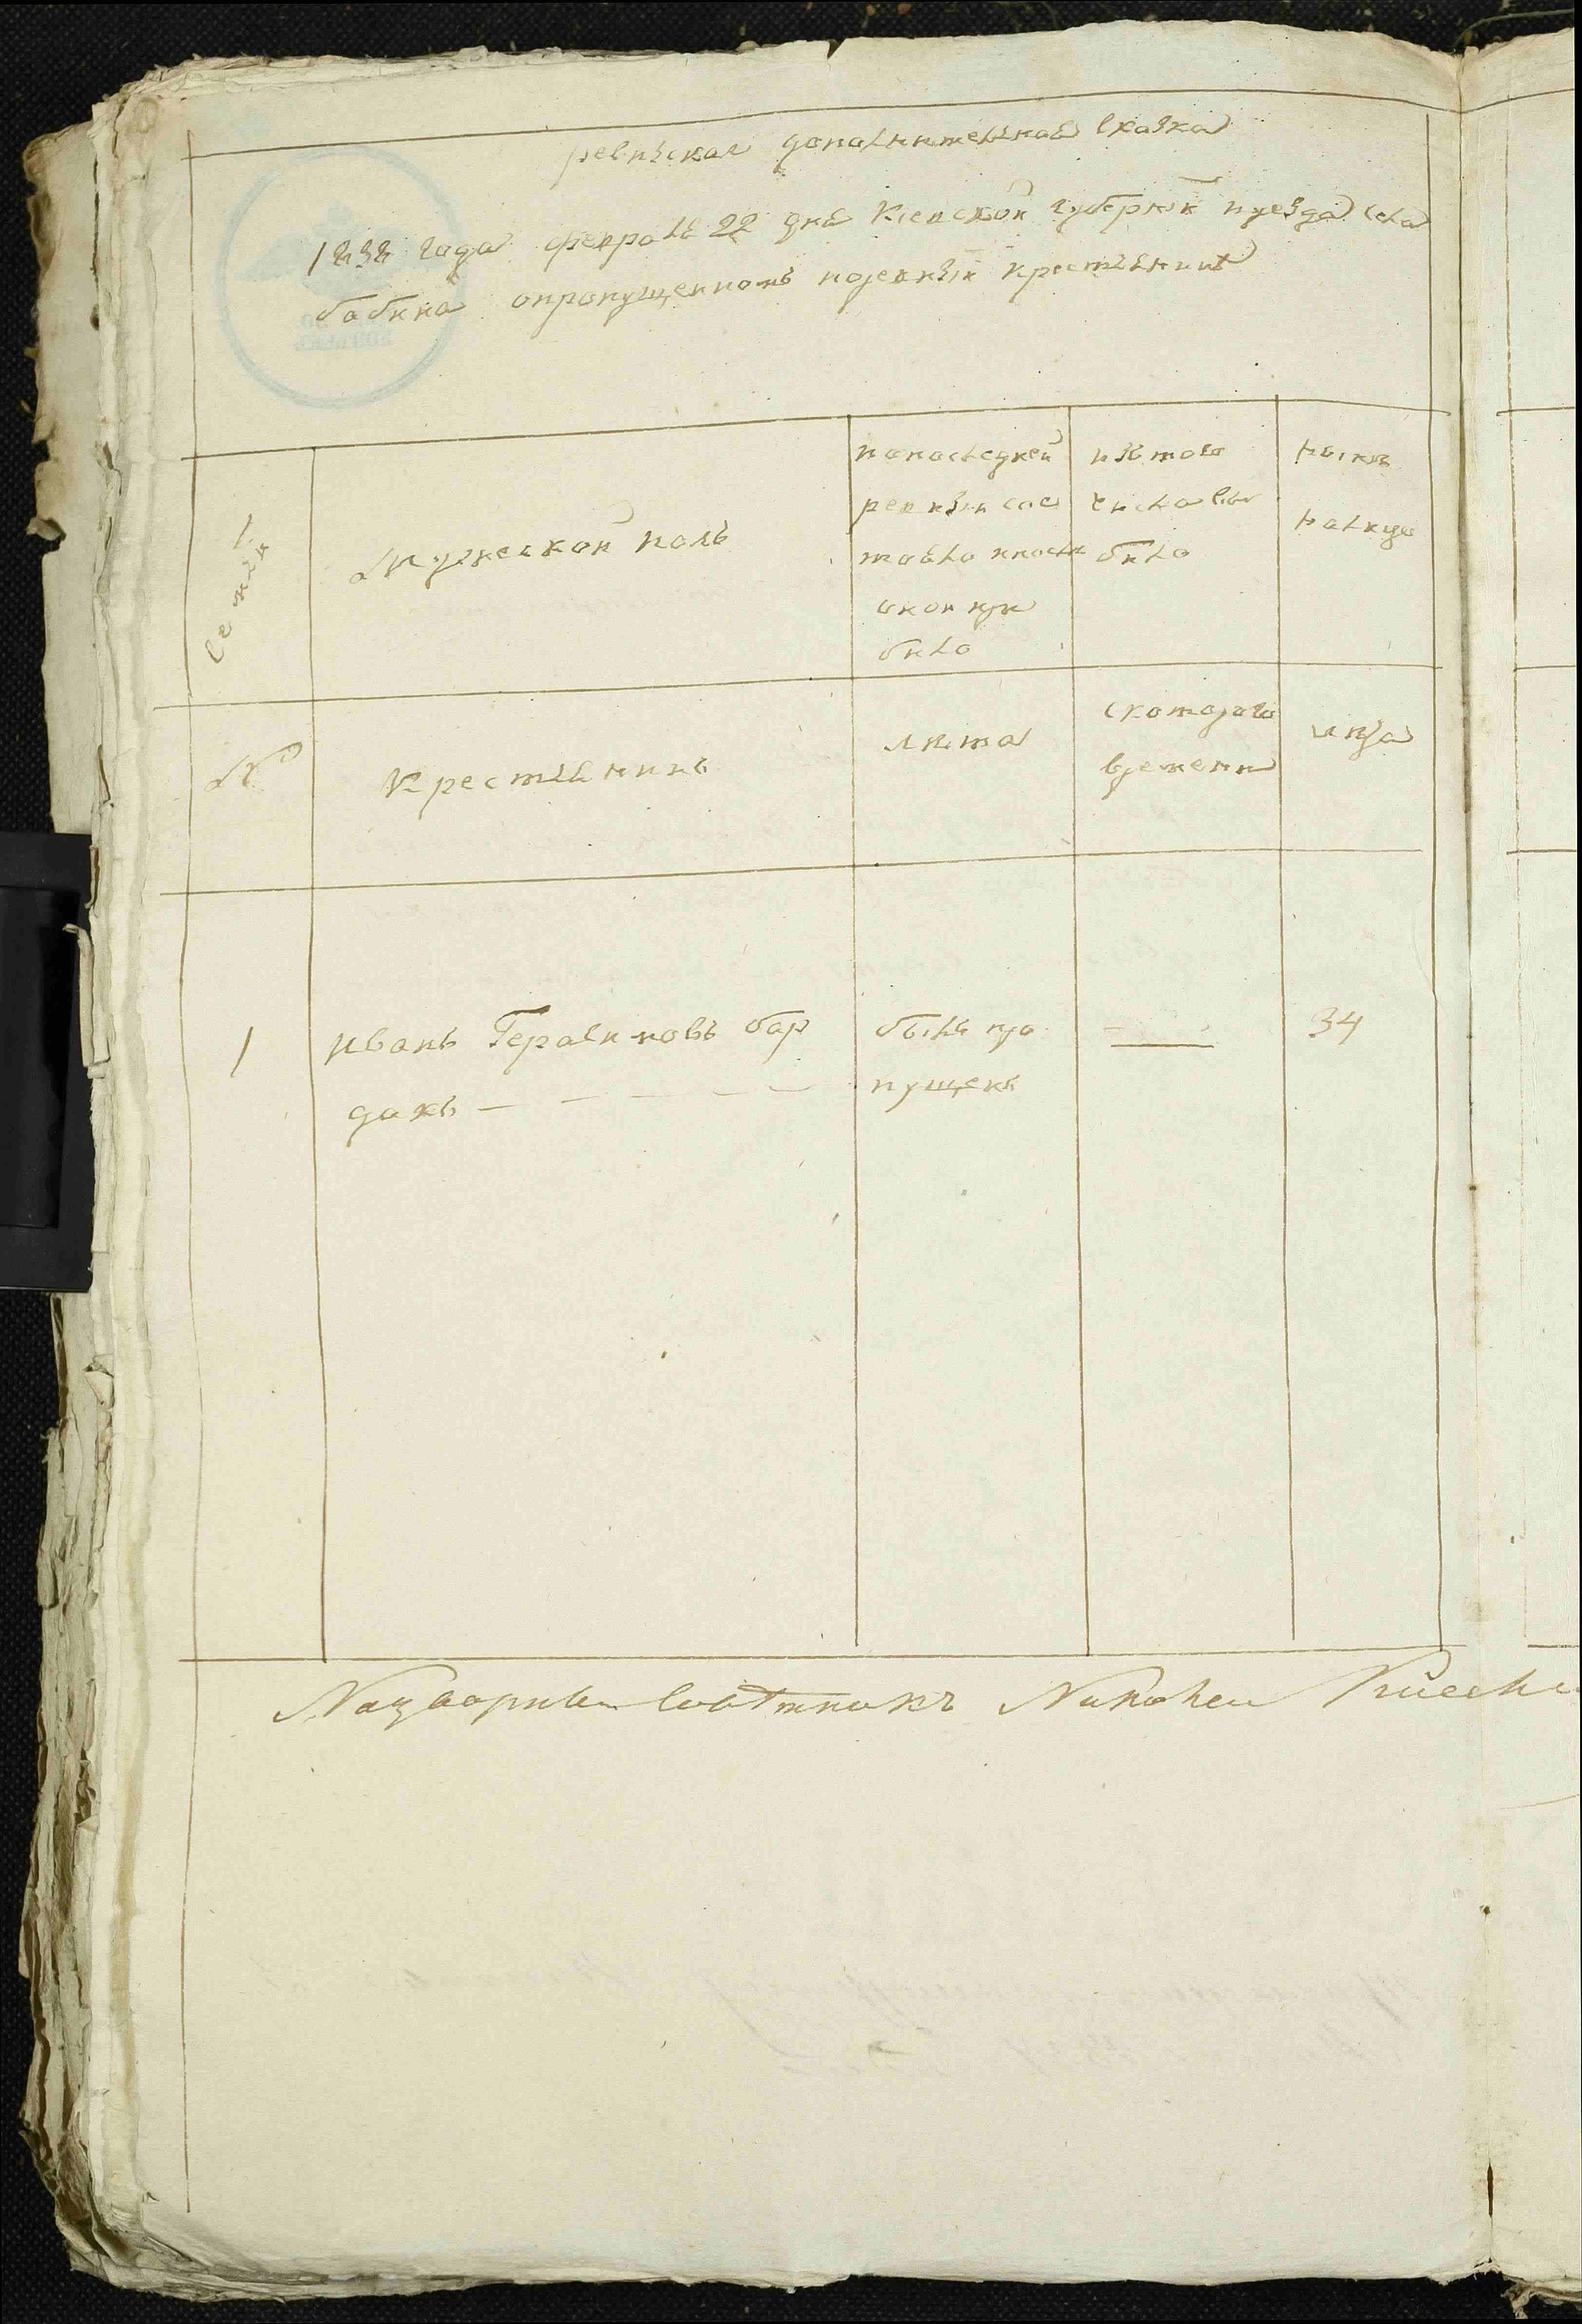 ревизская дополнительная сказка
1838 года февраля 22 дня Киевской губернiи и уезда села
бабина опропущенномъ поревизiи крестьянинѣ
Семьи
Мужеской полъ
попоследней
ревизiи сос
тояло ипосле
оной при
было
изтого
числа вы
было
ныне
налицо
№
Крестьянинъ
лѣта
скотораго
времени
лѣта
1
иванъ Герасимовъ бар
данъ — — — — —
былъ про
пущенъ
—
34
Надворный Советникъ